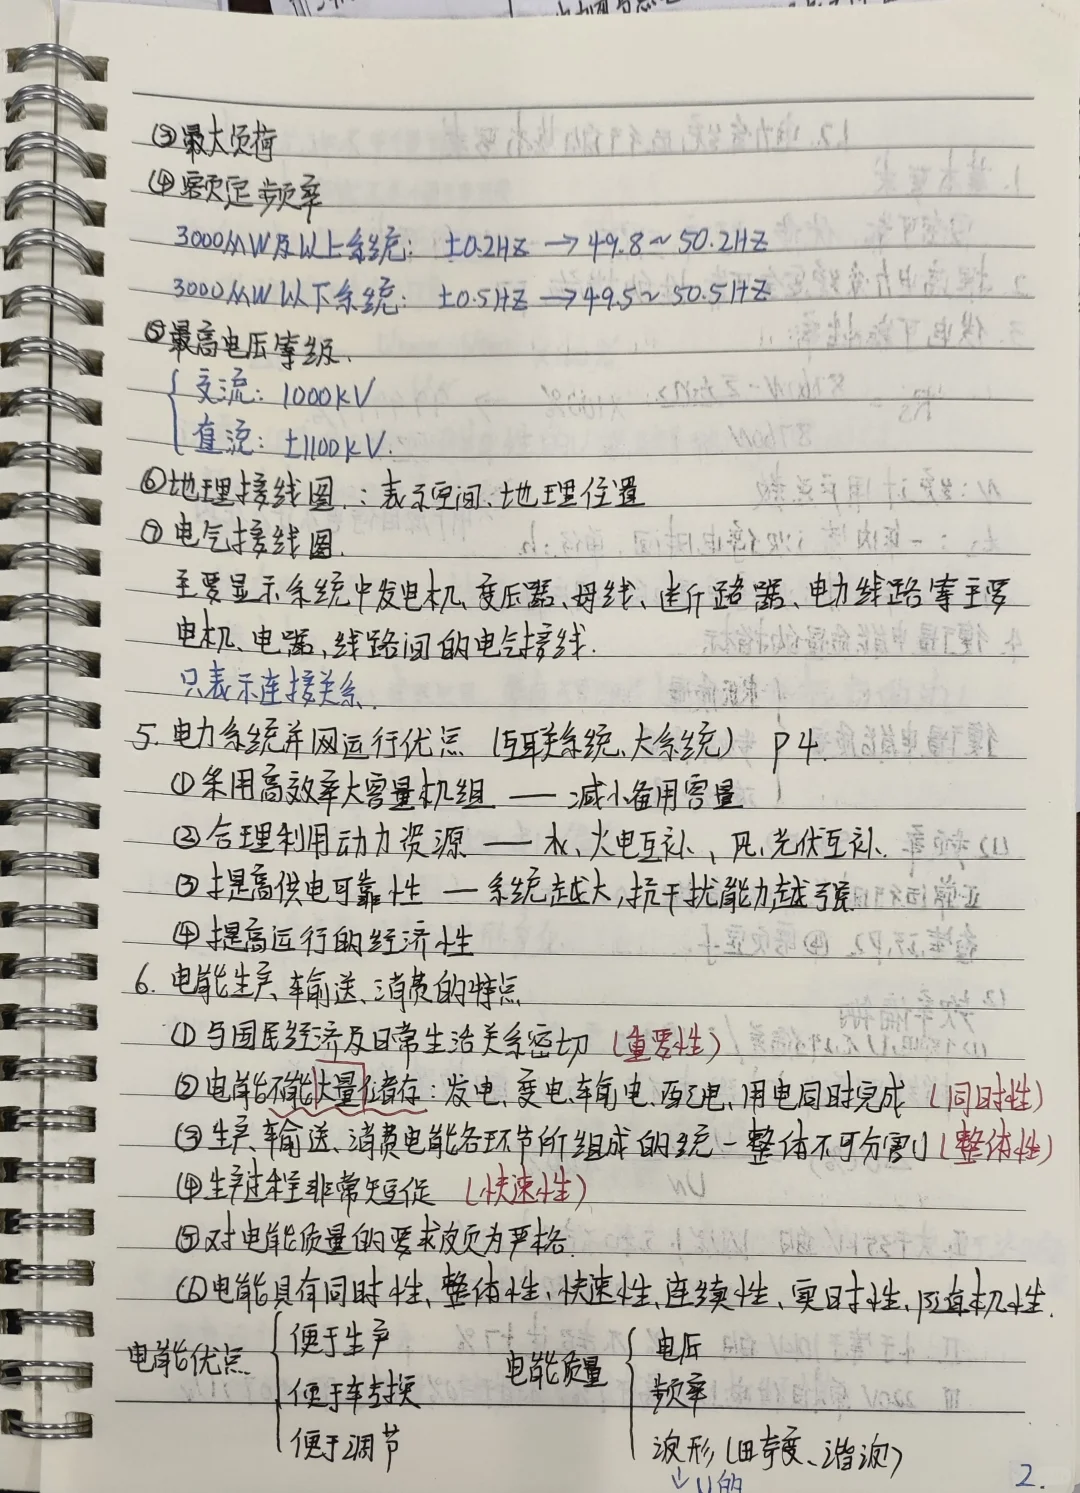 ③最大负荷
④额定频率
3000MW及以上系统: ±0.2HZ → 49.8~50.2HZ
3000MW以下系统: ±0.5HZ → 49.5~50.5HZ
⑤最高电压等级.
交流: 1000kV
直流: ±1100kV.
⑥地理接线图.: 表示空间、地理位置
⑦电气接线图.
主要显示系统中发电机、变压器、母线、断路器、电力线路等主要
电机、电器,线路间的电气接线.
只表示连接关系.
5. 电力系统并网运行优点 (互联系统、大系统) P4.
①采用高效率大容量机组 —— 减小备用容量
②合理利用动力资源 —— 水、火电互补、风、光伏互补.
③提高供电可靠性 — 系统越大,抗干扰能力越强
④提高运行的经济性
6. 电能生产、输送、消费的特点
①与国民经济及日常生活关系密切 (重要性)
②电能不能大量储存: 发电、变电、输电、配电、用电同时完成 (同时性)
③生产、输送、消费电能各环节所组成的统一整体不可分割 (整体性)
④生产过程非常短促 (快速性)
⑤对电能质量的要求颇为严格.
⑥电能具有同时性、整体性、快速性、连续性、实时性、随机性.
电能优点 便于生产 便于转换 便于调节
电能质量 电压 频率 波形(、谐波)
↓U的
2.